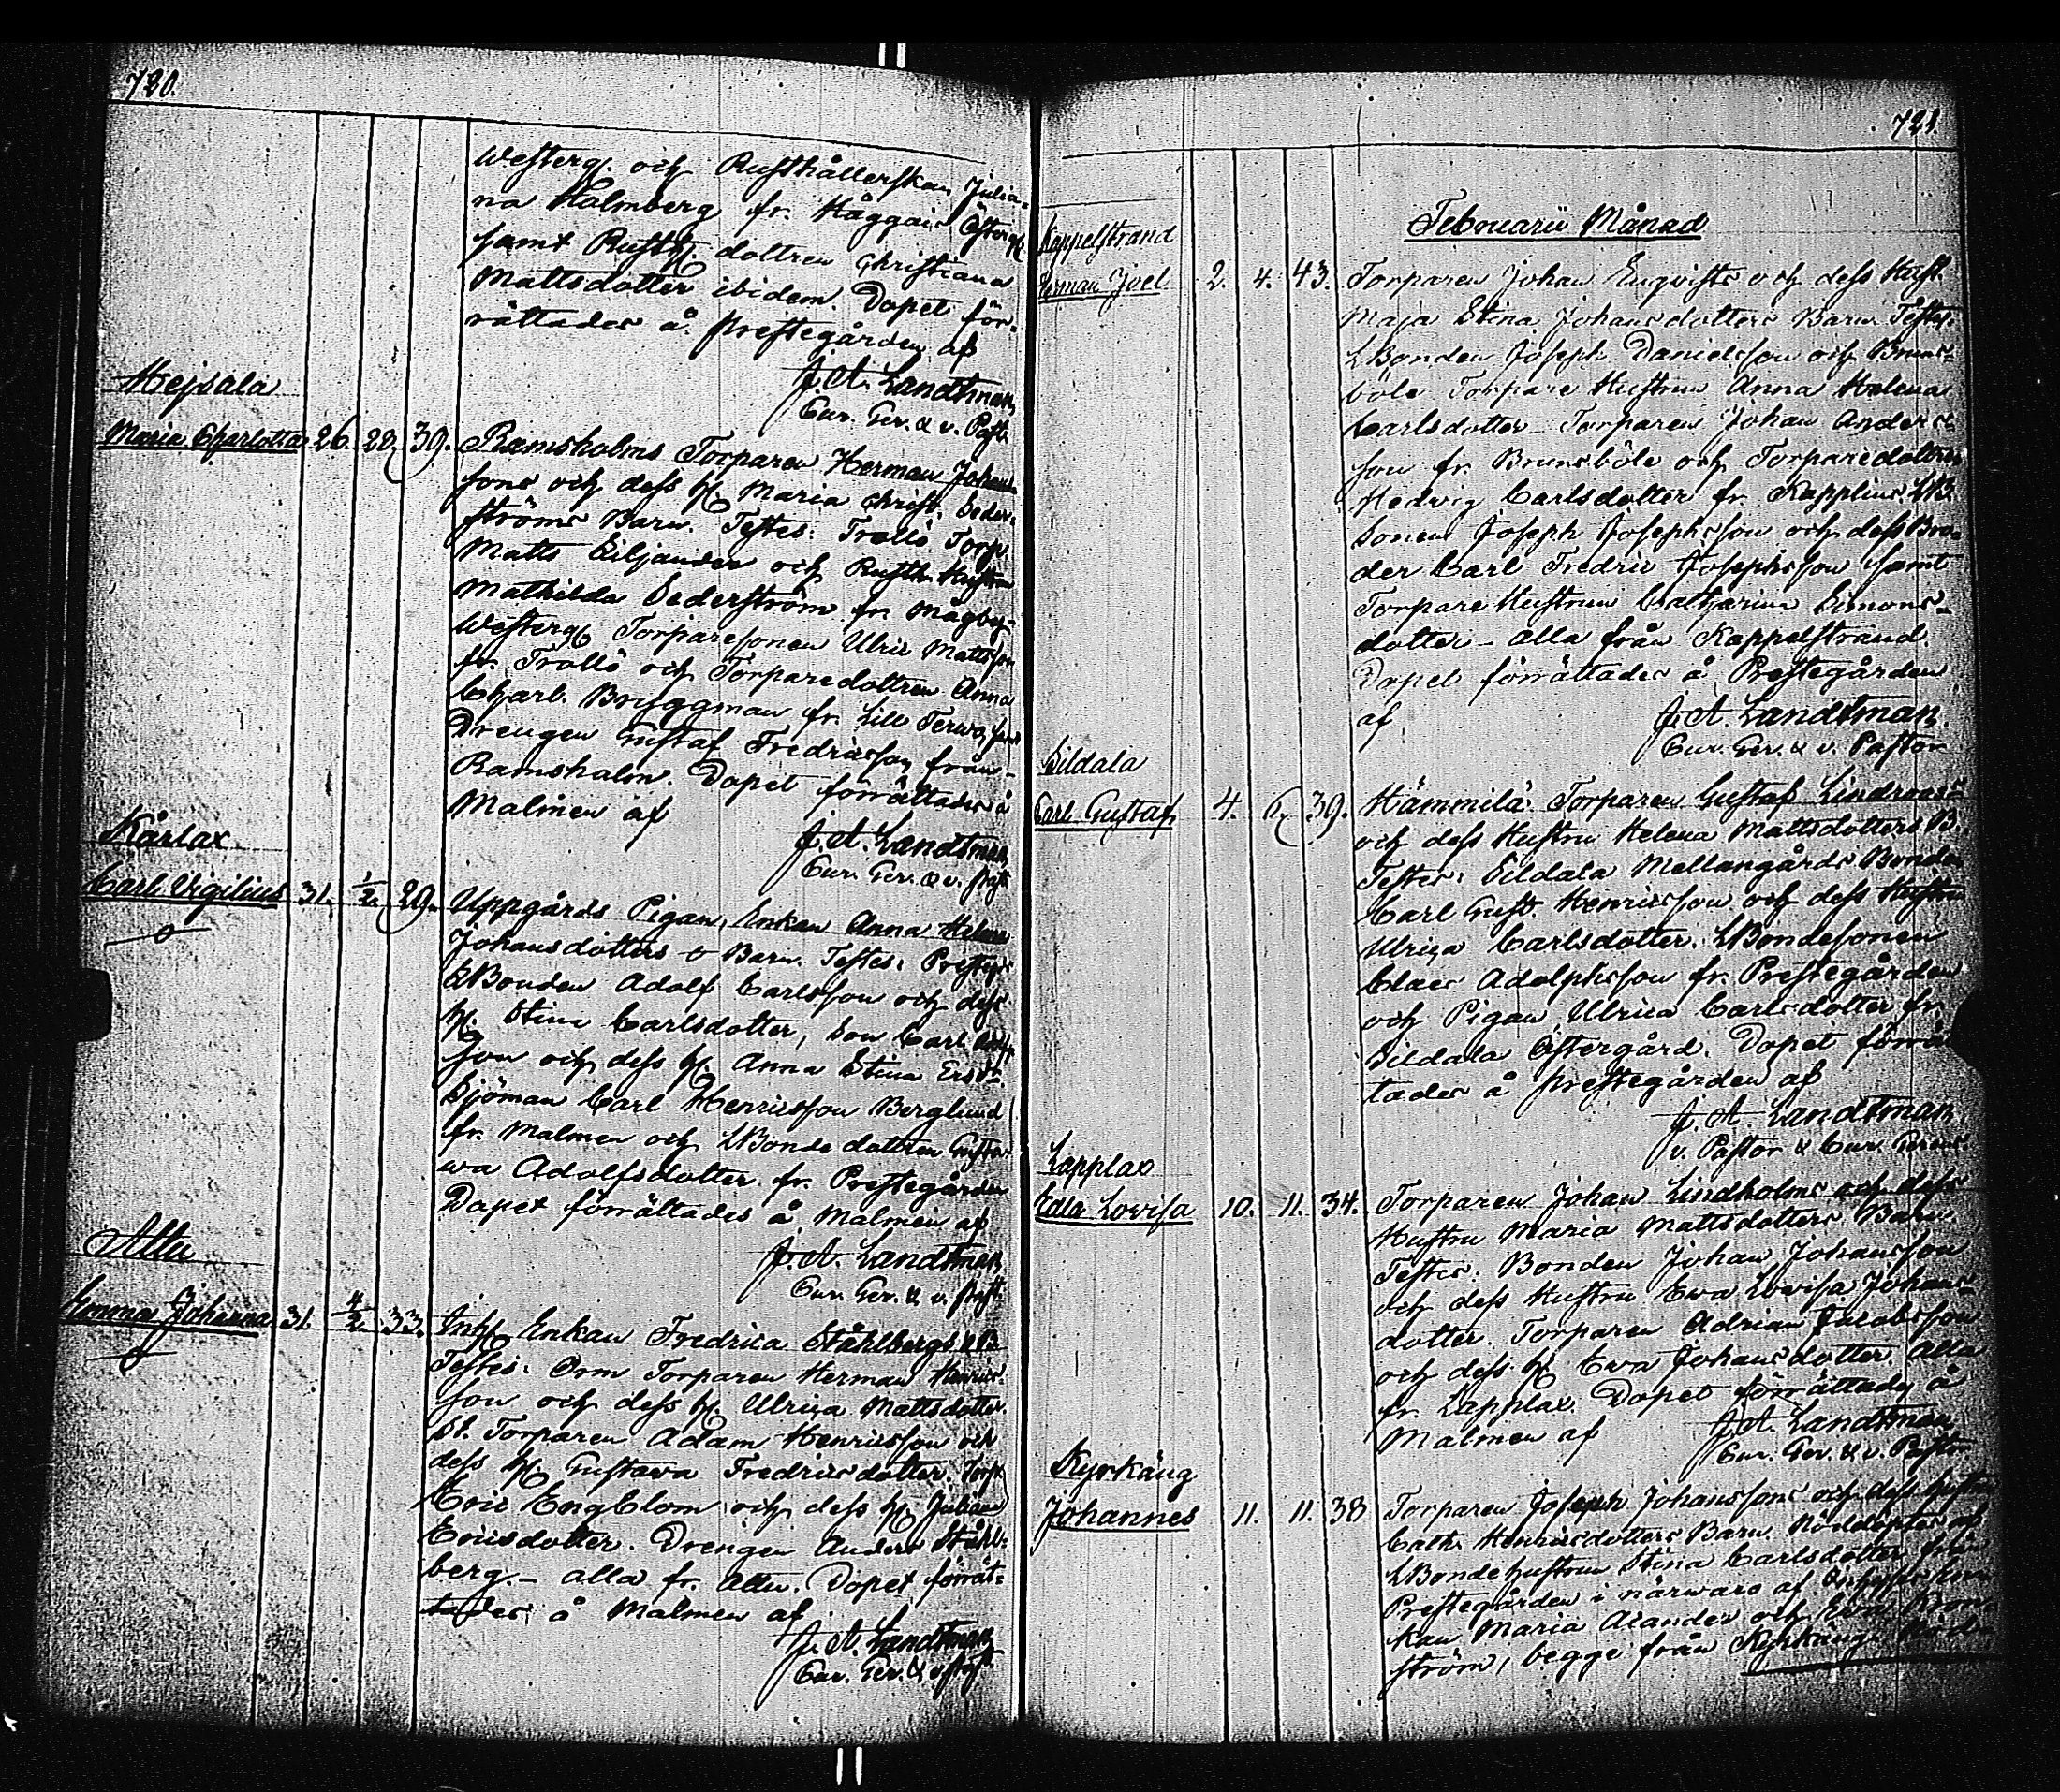 720.
Westerg. och Rusthållerskan Julia-
na Holmberg fr. Haggais Österg.
samt Rusth. dottren Christiana
Mattsdotter ibidem. Dopet för-
rättades å Prestegården af
J. A. Landtman
Cur. Ger. & v. Past.
Mejsala
Maria Charlotta 26. 28. 39. Ramsholms Torparen Herman Johans-
sons och dess H. Maria Christ. Seder-
ströms Barn. Testes: Trollö Torp.
Matts Siljander och Rusth. Hustru
Mathilda Sederström fr. Mågby-
Westerg. Torparesonen Ulric Mattsson
fr. Trollö och Torparedottren Anna
Charl. Bryggman fr. Lill Terwo, samt
Drengen Gustaf Fredricsson från
Ramsholm. Dopet förrättades å
Malmen af
J. A. Landtman
Cur. Ger. & v. Past.
Kårlax
Carl Vigilius 31. 1/2. 29. Uppgårds Pigan, Enkan Anna Helena
Johansdotters o Barn. Testes: Prestegs
LBonden Adolf Carlsson och dess
H. Stina Carlsdotter, Son Carl Adolfs-
son och dess H. Anna Stina Ersdr.
Sjöman Carl Henricsson Berglund
fr. Malmen och LBonde dottren Gusta-
wa Adolfsdotter fr. Prestegården
Dopet förrättades å Malmen af
J. A. Landtman
Cur. Ger. & v. Past.
Attu
Emma Johanna 31. 4/2. 33. Inh. Enkan Fredrica Ståhlbergs o B.
Testes: Orm Torparen Herman Henrics-
son och dess H. Ulrica Mattsdotter.
St. Torparen Adam Henricsson och
dess H. Gustava Fredricsdotter. Torp.
Eric Engblom och dess H. Juliana
Ericsdotter. Drengen Anders Ståhl-
berg. - alla fr. Attu. Dopet förrät-
tades å Malmen af
J. A. Landtman
Cur. Ger. & v. Past.
721.
Februarii Månad
Kappelstrand
Herman Joel 2. 4. 43. Torparen Johan Enqvists och dess Hust.
Maja Stina Johansdotters Barn. Testes:
LBonden Joseph Danielsson och Bruns-
böle Torpare Hustrun Anna Helena
Carlsdotter - Torparen Johan Anders-
son fr. Brunsböle och Torparedottren
Hedvig Carlsdotter fr. LB.
Sonen Joseph Josephsson och dess Bro-
der Carl Fredric Josephsson samt
Torpare Hustrun Catharina Simons-
dotter - alla från Kappelstrand.
Dopet förrättades å Prestegården
af J. A. Landtman
Cur. Ger. & v. Pastor
Sildala
Carl Gustaf 4. 6. 39. Hämmilä Torparen Gustaf Lindroos
och dess Hustru Helena Mattsdotters B.
Testes: Sildala Mellangårds Bonden
Carl Gust. Henricsson och dess Hustru
Ulrica Carlsdotter. LBondesonen
Claes Adolphsson fr. Prestegården
och Pigan Ulrica Carlsdotter fr.
Sildala Östergård. Dopet förrät-
tades å Prestegården af
J. A. Landtman
v. Pastor & Cur. Gerens
Lapplax
Edla Lovisa 10. 11. 34. Torparen Johan Lindholms och dess
Hustru Maria Mattsdotters Barn.
Testes: Bonden Johan Johansson
och dess Hustru Ewa Lovisa Johans-
dotter. Torparen Adrian Jacobsson
och dess H. Ewa Johansdotter. Alla
fr. Lapplax. Dopet förrättades å
Malmen af J. A. Landtman
Cur. Ger. & v. Pastor
Kyrkäng
Johannes 11. 11. 38 Torparen Joseph Johanssons och dess Hustru
Cath. Henricsdotters Barn. Nöddöptes af
LBondehustrun Stina Carlsdotter från
Prestegården i närwaro af
Maria Alander och
ström, begge från Kyrkäng.